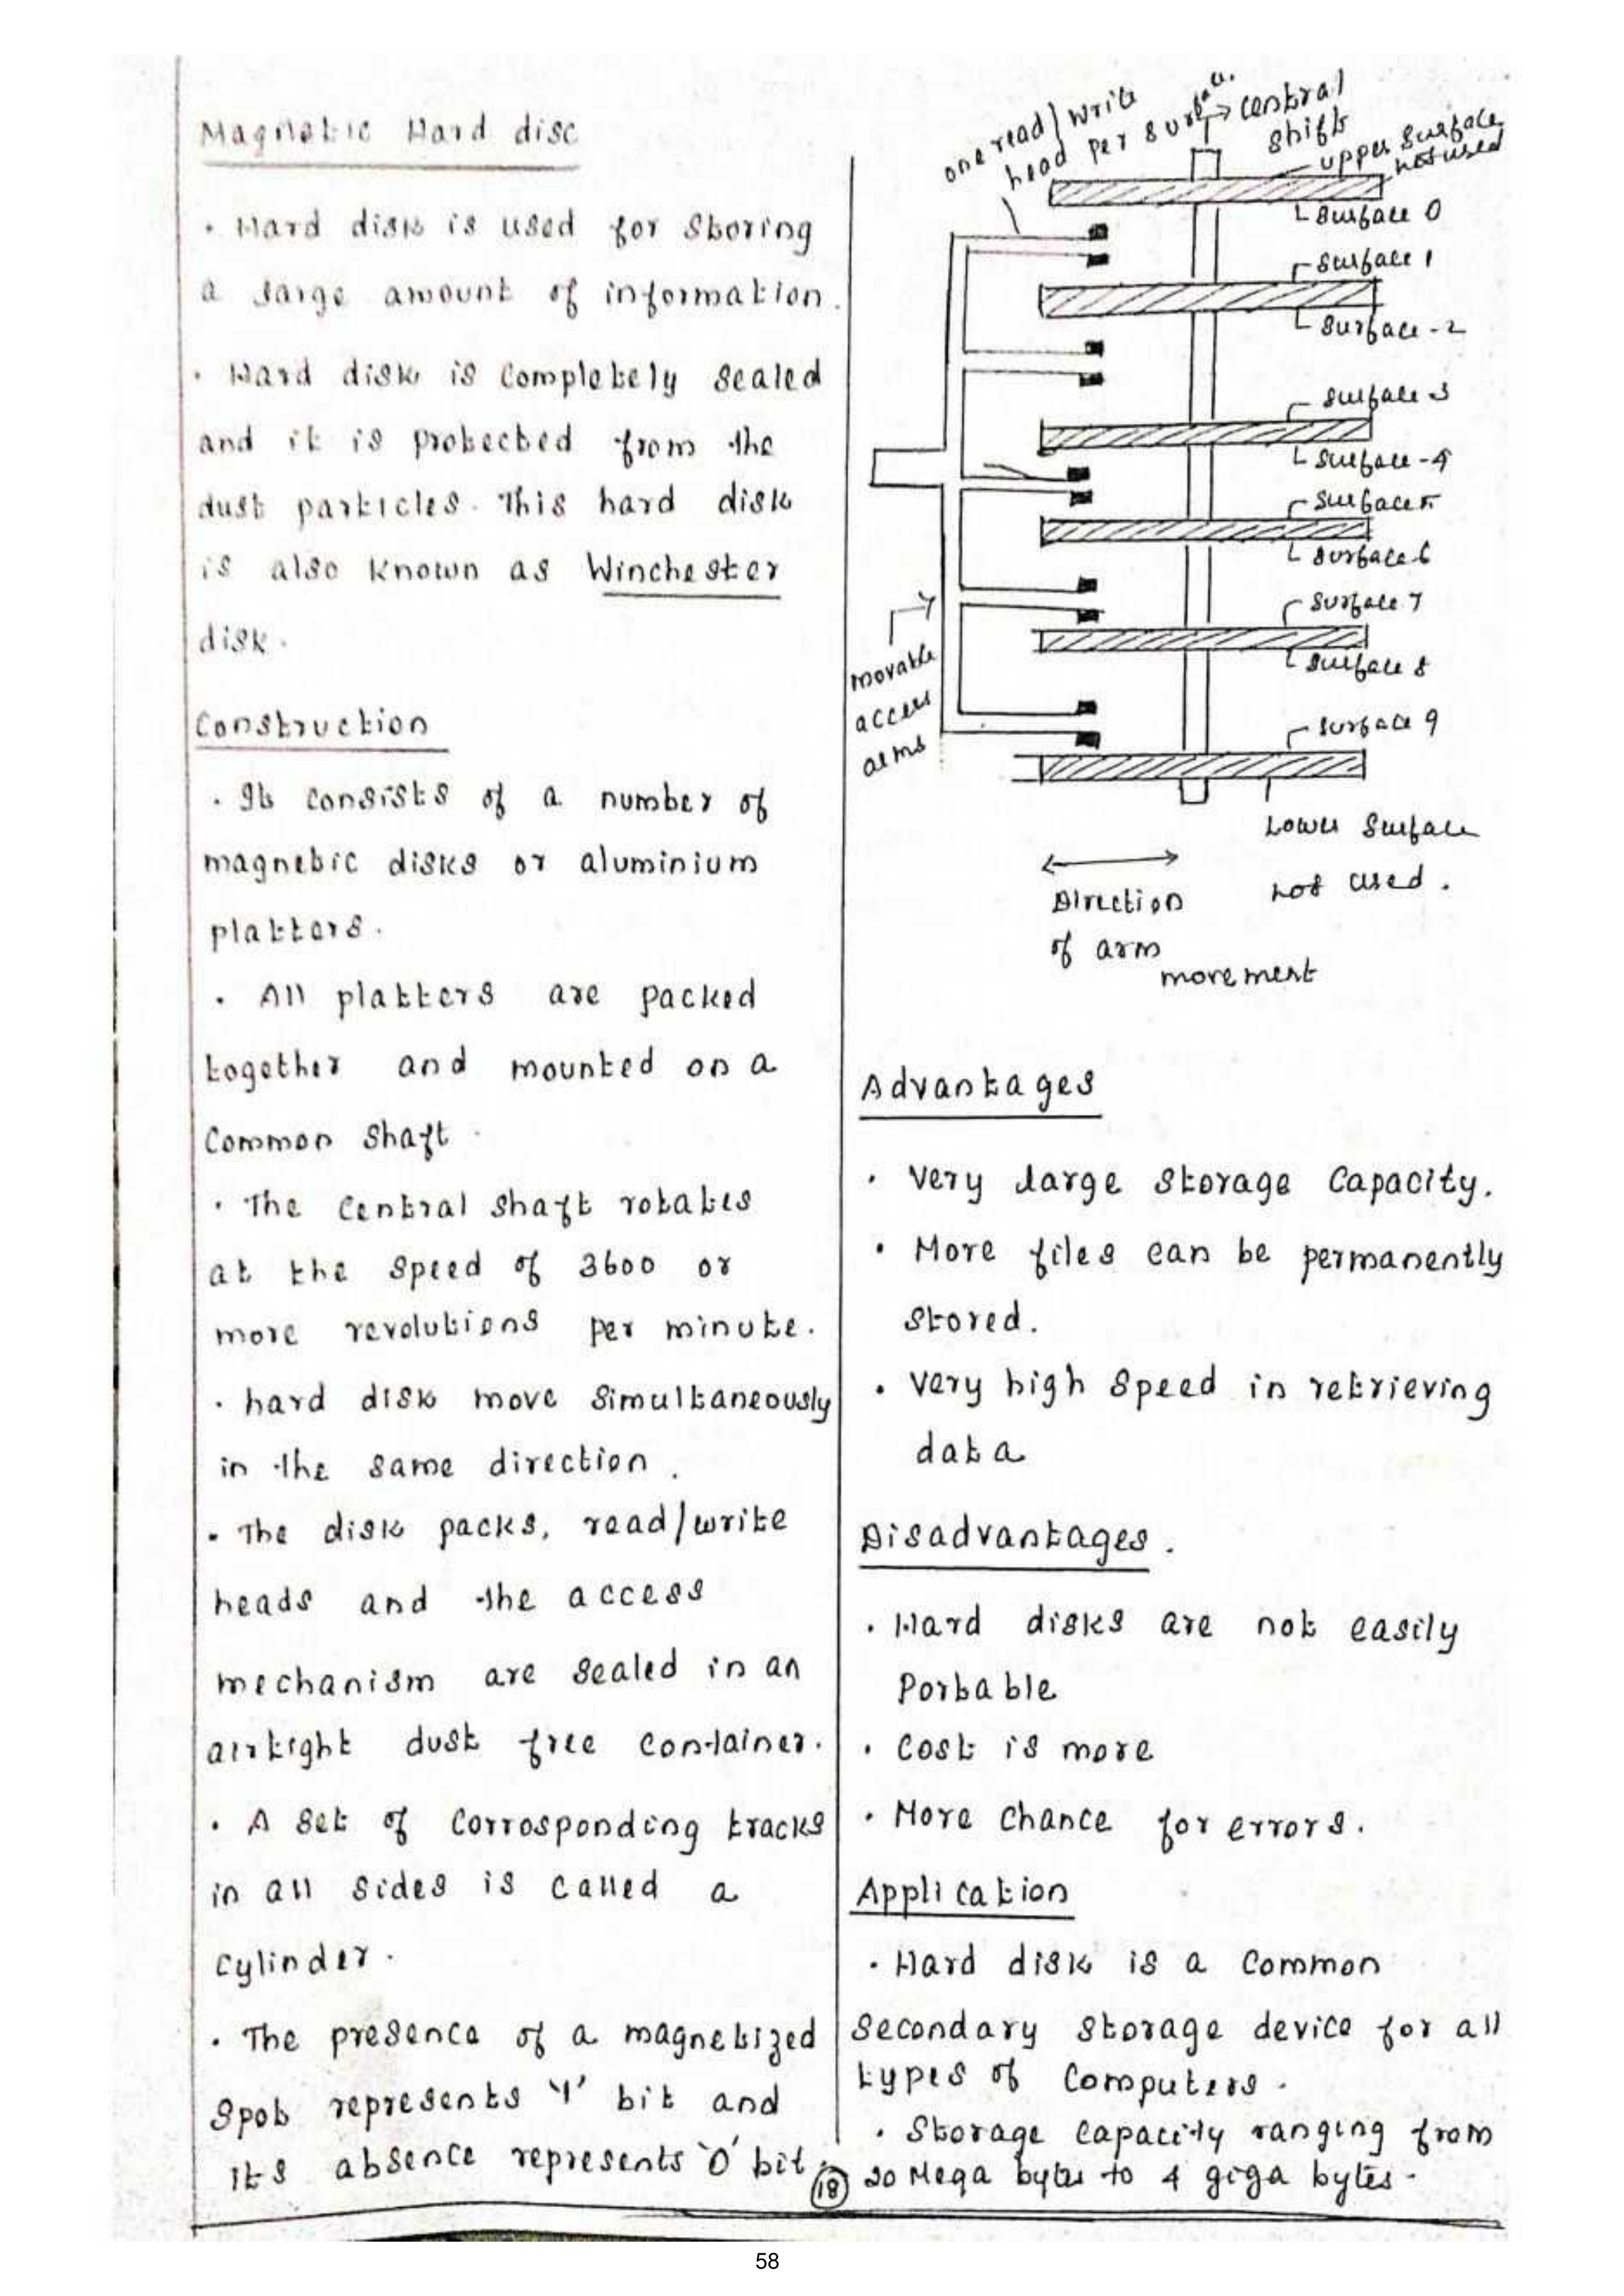 Magnetic Hard disc
• Hard disk is used for storing
a large amount of information.
• Hard disk is completely sealed
and it is protected from the
dust particles. This hard disk
is also known as Winchester
disk.
Construction
• It consists of a number of
magnetic disks or aluminium
platters.
• All platters are packed
together and mounted on a
common shaft.
• The central shaft rotates
at the speed of 3600 or
more revolutions per minute.
• hard disk move simultaneously
in the same direction.
• The disk packs, read/write
heads and the access
mechanism are sealed in an
airtight dust free container.
• A set of corrosponding tracks
in all sides is called a
cylinder.
• The presence of a magnetized
spot represents '1' bit and
its absence represents '0' bit.
one read/write
head per surface.
central
shift
upper surface
not used
Surface 0
Surface 1
Surface-2
Surface 3
Surface-4
Surface 5
Surface 6
Surface 7
Surface 8
Surface 9
movable
access
arms
Lower Surface
not used.
Direction
of arm
movement
Advantages
• Very large storage capacity.
• More files can be permanently
stored.
• Very high speed in retrieving
data
Disadvantages.
• Hard disks are not easily
Portable
• Cost is more
• More chance for errors.
Application
• Hard disk is a common
secondary storage device for all
types of computers.
• Storage capacity ranging from
20 Mega bytes to 4 giga bytes.
18
58